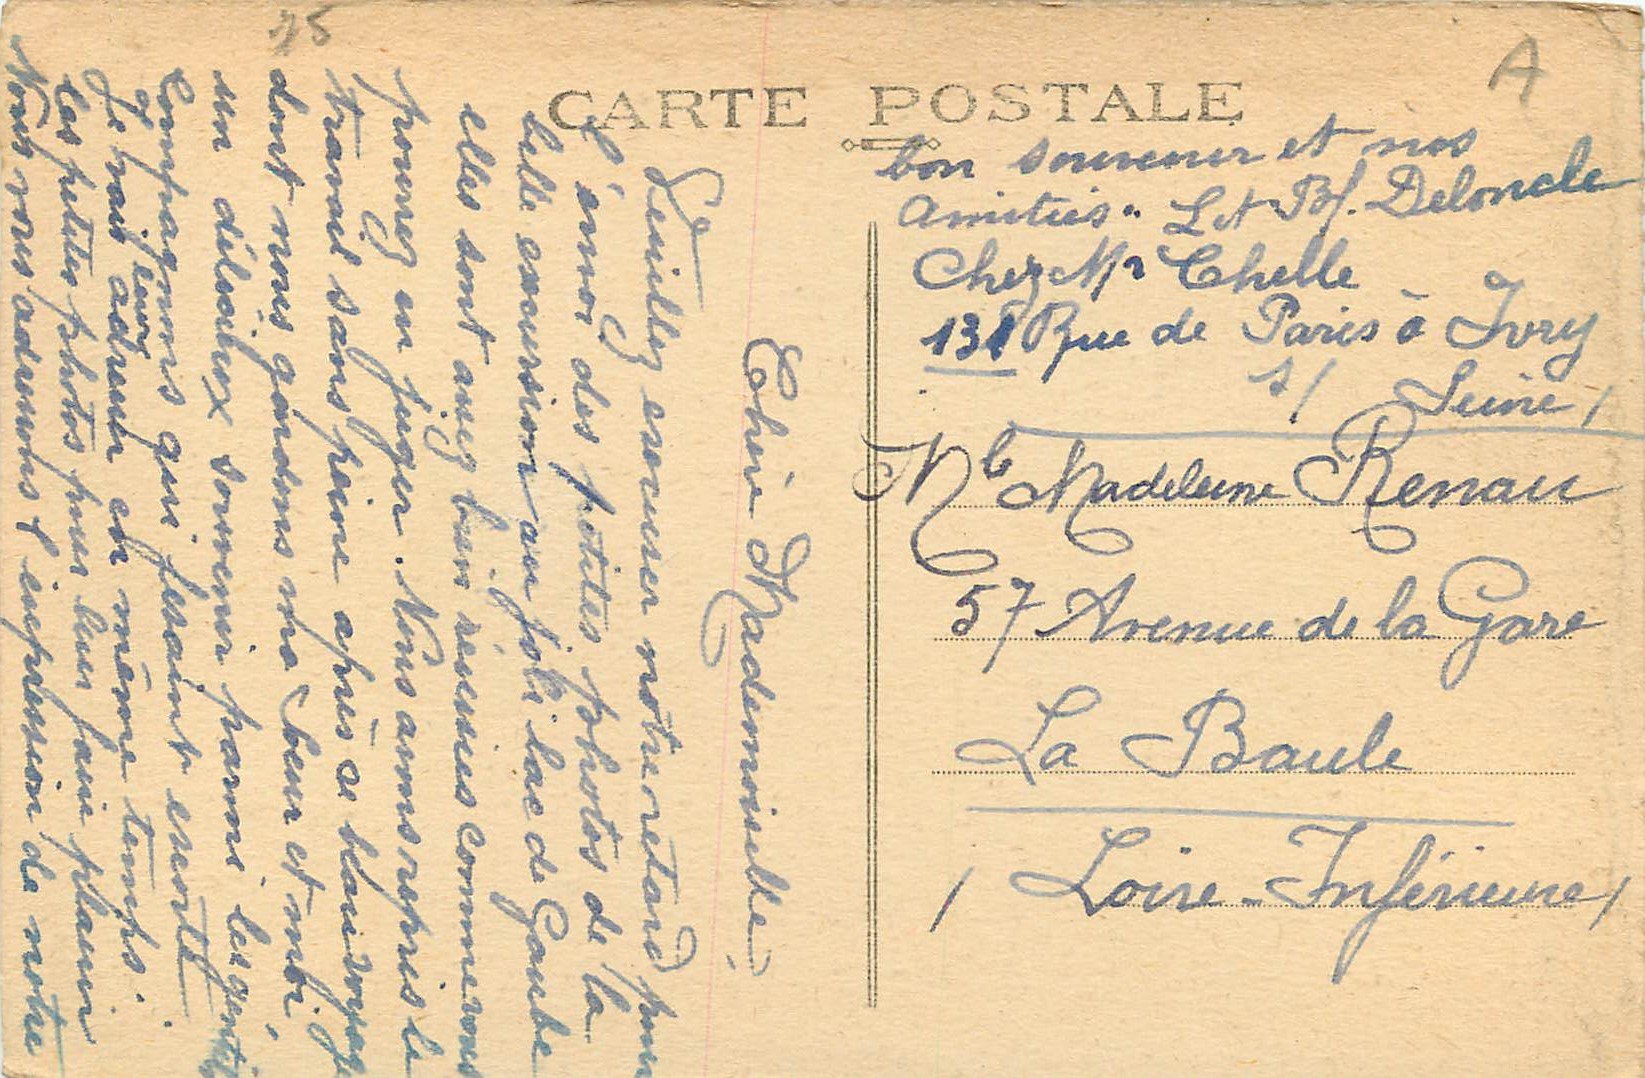 25
A
CARTE POSTALE
Chère Mademoiselle,
Veuillez excuser notre retard pour
l'envoi des petites photos de la
belle excursion au joli lac de Gaube
elles sont assez bien réussies comme vous
pourrez en juger. Nous avons repris le
travail sans peine après ce beau voyage
dont nous gardons ma Sœur et moi,
un délicieux souvenir parmi les gentils
Compagnons qui fesaient escorte.
Je vais adresser en même temps
les petites photos pour leur faire plaisir
Nous vous adressons l'expression de notre
bon souvenir et nos
amitiés. L et Deloncle
Chez Mr Chelle
131 Rue de Paris à Ivry
s/ Seine /
Mle Madeleine Renau
57 Avenue de la Gare
La Baule
/ Loire-Inférieure /